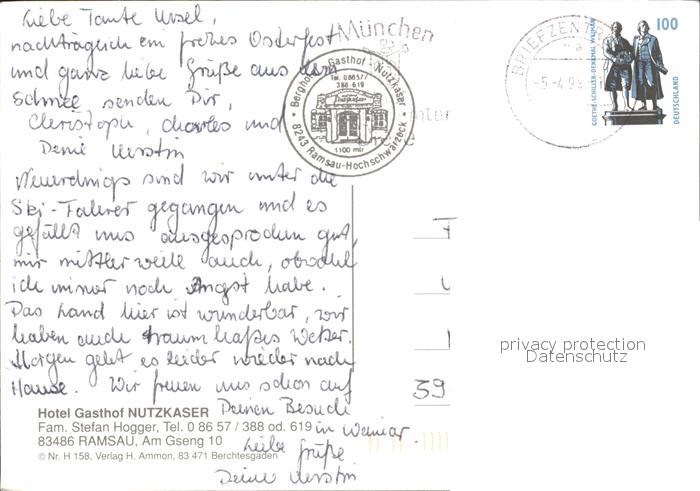 Liebe Tante Ursel,
nachträglich ein frohes Osterfest
und ganz liebe Grüße aus dem
Schnee senden Dir,
Christoph, Charles und
Deine Kerstin
Neuerdings sind wir unter die
Ski-Fahrer gegangen und es
gefällt uns ausgesprochen gut,
mir mittlerweile auch, obwohl
ich immer noch Angst habe.
Das Land hier ist wunderbar, wir
haben auch traumhaftes Wetter.
Morgen geht es leider wieder nach
Hause. Wir freuen uns schon auf
Deinen Besuch
in Weimar.
Liebe Grüße
Deine Kerstin
Hotel Gasthof NUTZKASER
Fam. Stefan Hogger, Tel. 0 86 57 / 388 od. 619
83486 RAMSAU, Am Gseng 10
© Nr. H 158, Verlag H. Ammon, 83 471 Berchtesgaden
München
Berghotel Gasthof Nutzkaser
Tel. 08657/
388 - 619
Nutzkaser
1100 mtr
8243 Ramsau-Hochschwarzeck
BRIEFZENTR
-5.-4.99
GOETHE-SCHILLER-DENKMAL WEIMAR
100
DEUTSCHLAND
39
privacy protection
Datenschutz